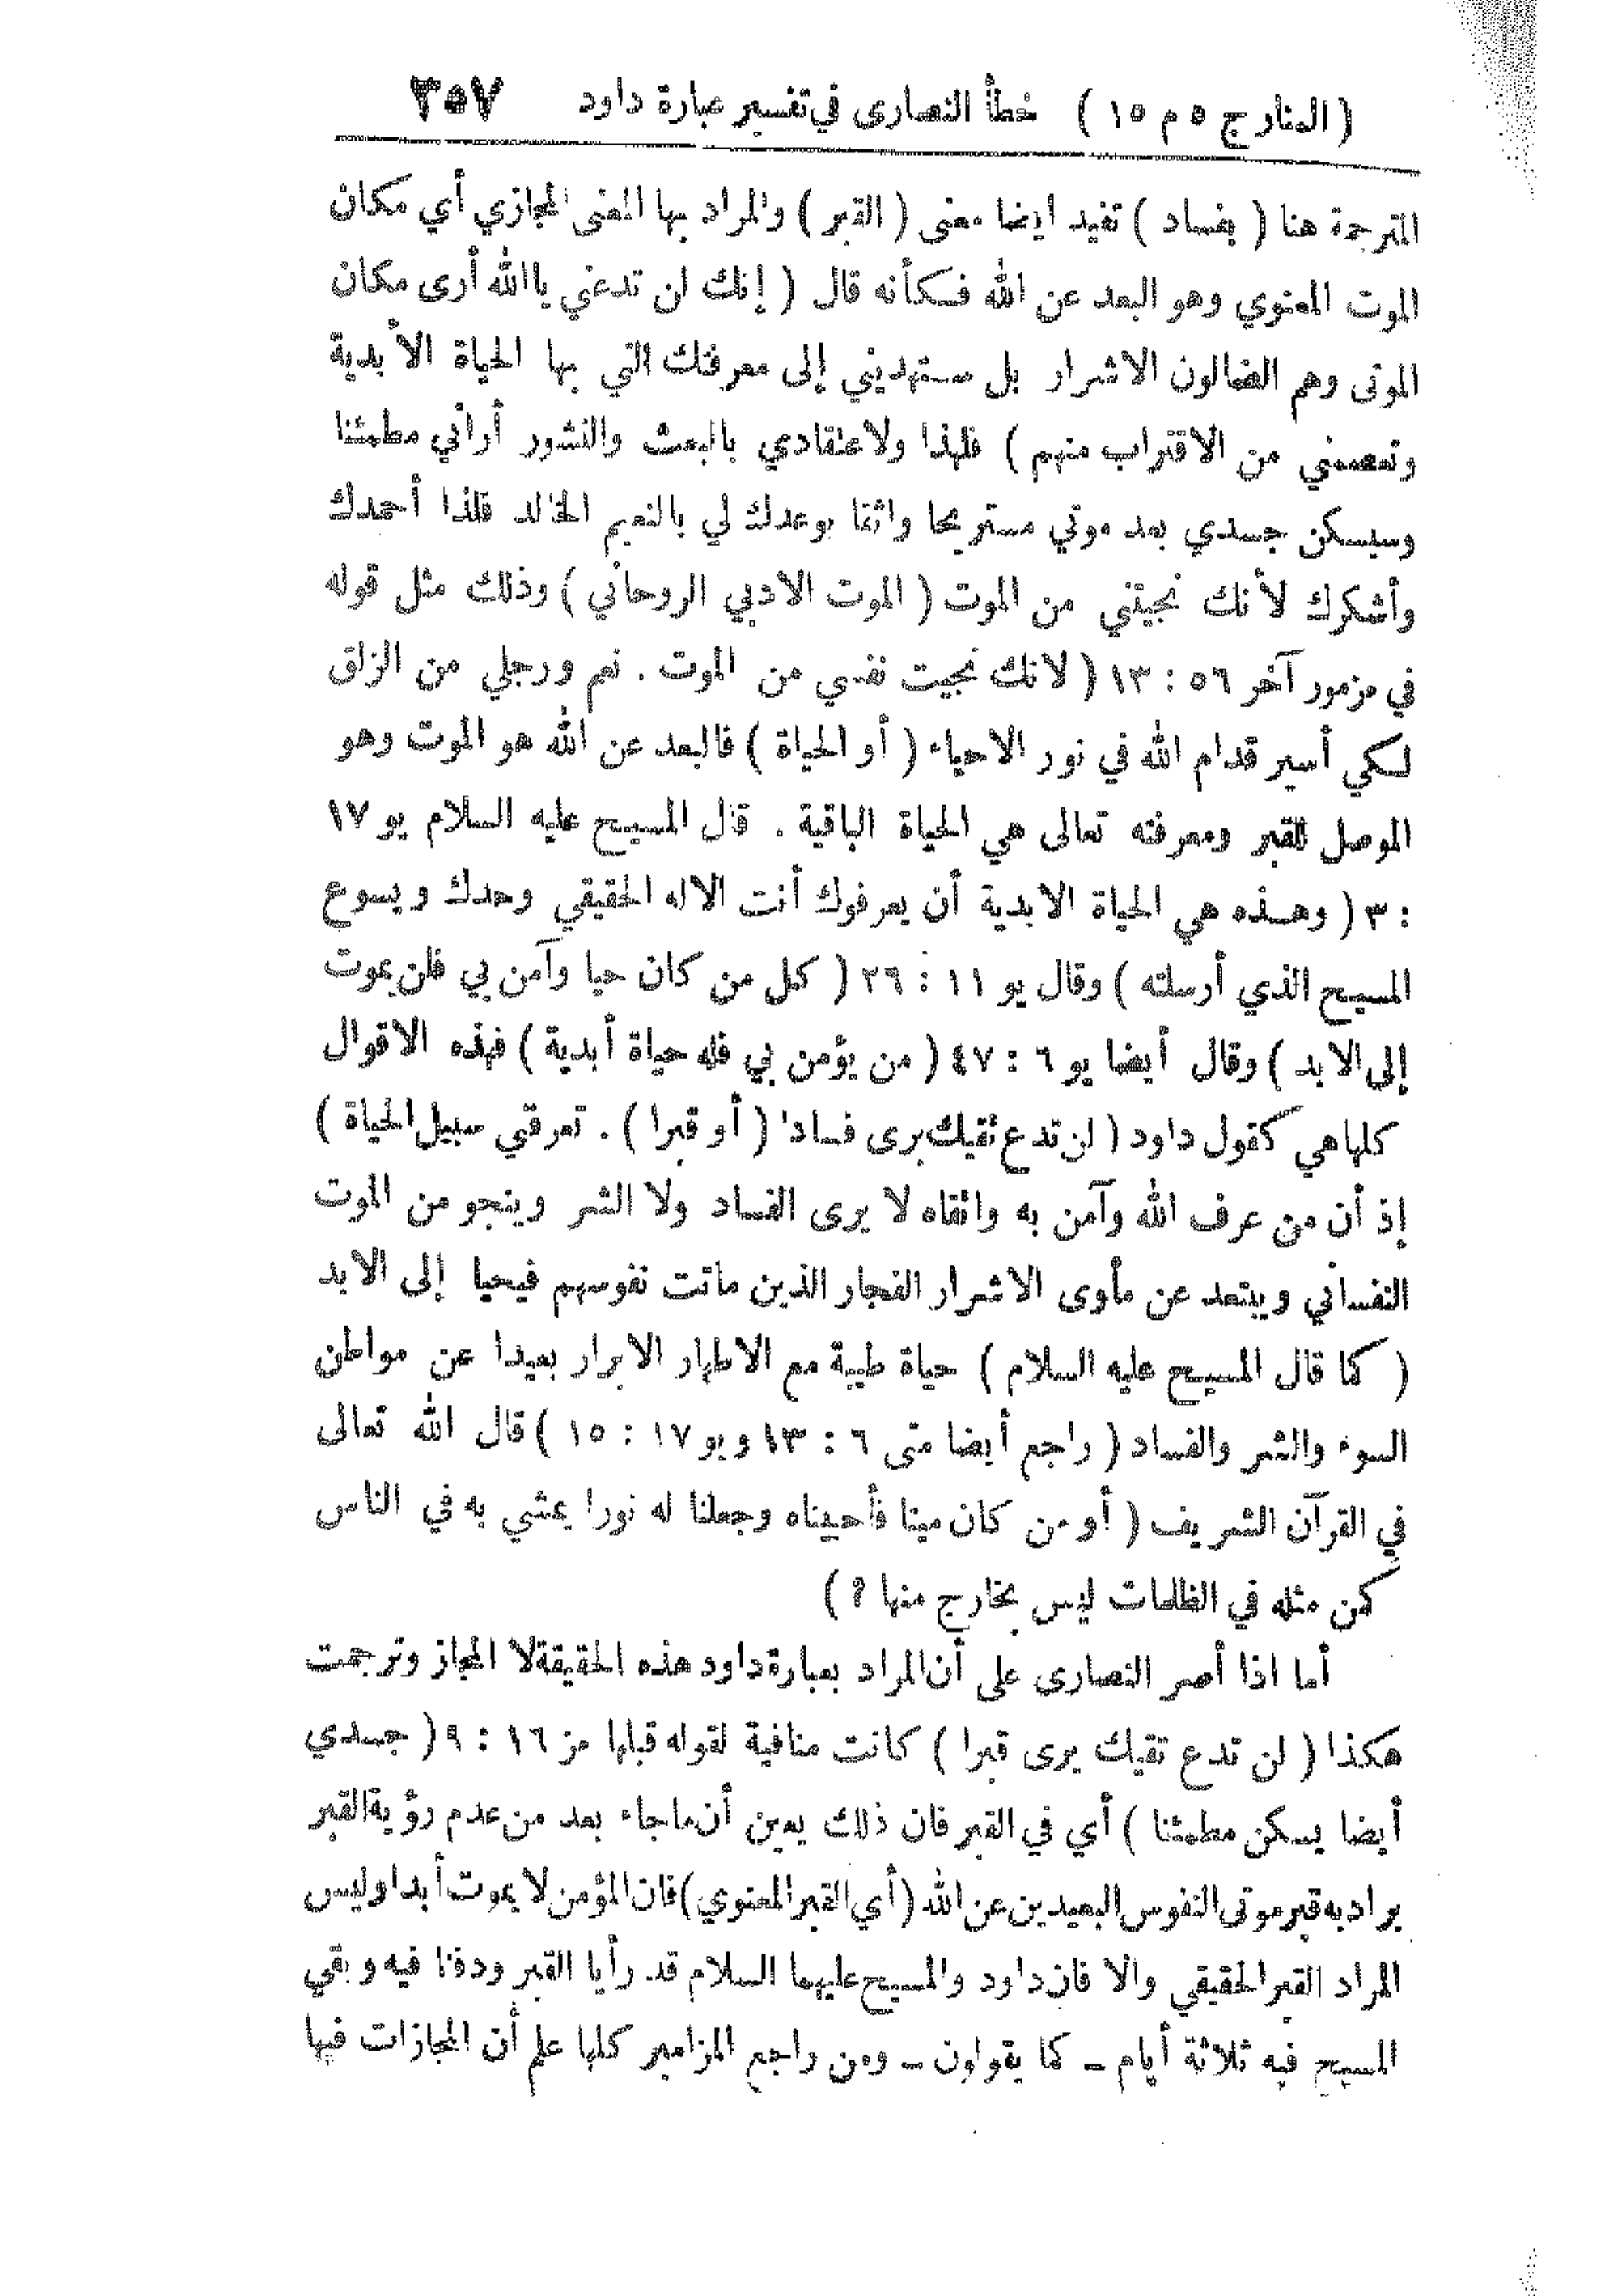 ( المنار ج ٥ م ١٥ ) خطأ النصارى في تفسير عبارة داود ٣٥٧
المترجمة هنا ( بفساد ) تفيد ايضا معنى ( القبر ) والمراد بها المعنى المجازي أي مكان
الموت المعنوي وهو البعد عن الله فكأنه قال ( إنك لن تدعني يا الله أرى مكان
الموتى وهم الضالون الاشرار بل ستهديني إلى معرفتك التي بها الحياة الأبدية
وتعصمني من الاقتراب منهم ) فلهذا ولاعتقادي بالبعث والنشور أراني مطمئنا
وسيسكن جسدي بعد موتي مستريحا واثقا بوعدك لي بالنعيم الخالد فلذا أحمدك
وأشكرك لأنك نجيتني من الموت ( الموت الادبي الروحاني ) وذلك مثل قوله
في مزمور آخر ٥٦ : ١٣ ( لانك نجيت نفسي من الموت . نعم ورجلي من الزلق
لكي أسير قدام الله في نور الاحياء ( أو الحياة ) فالبعد عن الله هو الموت وهو
الموصل للقبر ومعرفته تعالى هي الحياة الباقية . قال المسيح عليه السلام يو ١٧
: ٣ ( وهذه هي الحياة الابدية أن يعرفوك أنت الاله الحقيقي وحدك ويسوع
المسيح الذي أرسلته ) وقال يو ١١ : ٢٦ ( كل من كان حيا وآمن بي فلن يموت
إلى الابد ) وقال أيضا يو ٦ : ٤٧ ( من يؤمن بي فله حياة أبدية ) فهذه الاقوال
كلها هي كقول داود ( لن تدع تقيك يرى فسادا ( أو قبرا ) . تعرفني سبيل الحياة )
إذ أن من عرف الله وآمن به واتقاه لا يرى الفساد ولا الشر وينجو من الموت
النفساني ويبتعد عن مأوى الاشرار الفجار الذين ماتت نفوسهم فيحيا إلى الابد
( كما قال المسيح عليه السلام ) حياة طيبة مع الاطهار الابرار بعيدا عن مواطن
السوء والشر والفساد ( راجع أيضا متى ٦ : ١٣ ويو ١٧ : ١٥ ) قال الله تعالى
في القرآن الشريف ( أو من كان ميتا فأحييناه وجعلنا له نورا يمشي به في الناس
كمن مثله في الظلمات ليس بخارج منها ؟ )
أما اذا أصر النصارى على أن المراد بعبارة داود هذه الحقيقة لا المجاز وترجمت
هكذا ( لن تدع تقيك يرى قبرا ) كانت منافية لقوله قبلها مز ١٦ : ٩ ( جسدي
أيضا يسكن مطمئنا ) أي في القبر فان ذلك يعين أن ما جاء بعد من عدم رؤية القبر
يراد به قبر موتى النفوس البعيدين عن الله ( أي القبر المعنوي ) فان المؤمن لا يموت أبدا وليس
المراد القبر الحقيقي والا فان داود والمسيح عليهما السلام قد رأيا القبر ودفنا فيه وبقي
المسيح فيه ثلاثة أيام – كما يقولون – ومن راجع المزامير كلها علم أن المجازات فيها